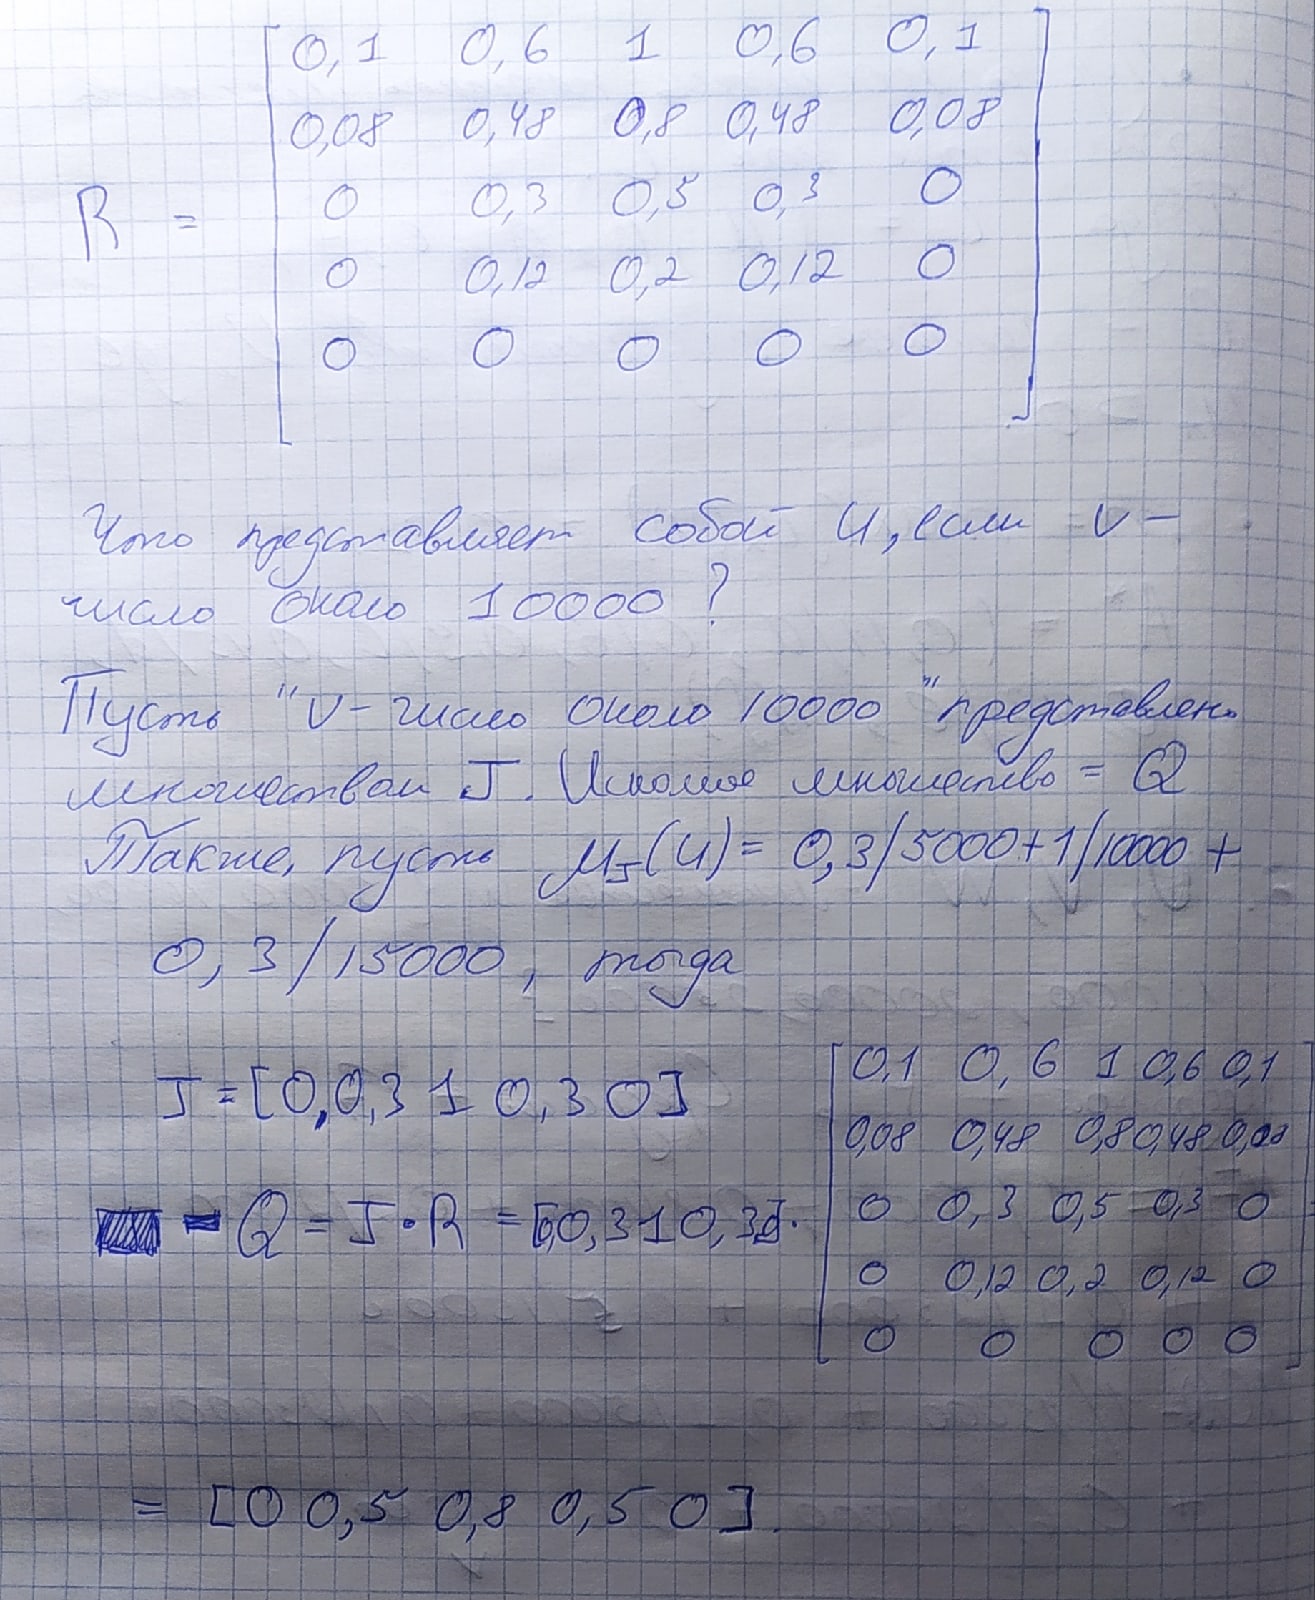 0,1 0,6 1 0,6 0,1
0,08 0,48 0,8 0,48 0,08
R = 0 0,3 0,5 0,3 0
0 0,12 0,2 0,12 0
0 0 0 0 0
Что представляет собой U, если v -
число около 10000 ?
Пусть "v - число около 10000" представлен.
множеством J. Искомое множество = Q
Также, пусть μJ(U) = 0,3/5000+1/10000 +
0,3/15000, тогда
J = [0,0,3 1 0,3 0]
0,1 0,6 1 0,6 0,1
0,08 0,48 0,8 0,48 0,08
- Q = J · R = [0,0,3 1 0,3 0] ·
0 0,3 0,5 0,3 0
0 0,12 0,2 0,12 0
0 0 0 0 0
= [0 0,5 0,8 0,5 0]